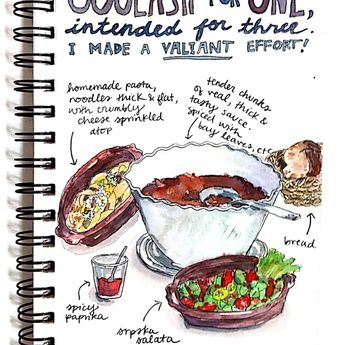 GOULASH FOR ONE,
intended for three.
I MADE A VALIANT EFFORT!
homemade pasta,
noodles thick & flat,
with crumbly
cheese sprinkled
atop
tender chunks
of veal, thick &
tasty sauce
spiced with
bay leaves, etc.
bread
spicy
paprika
srpska
salata